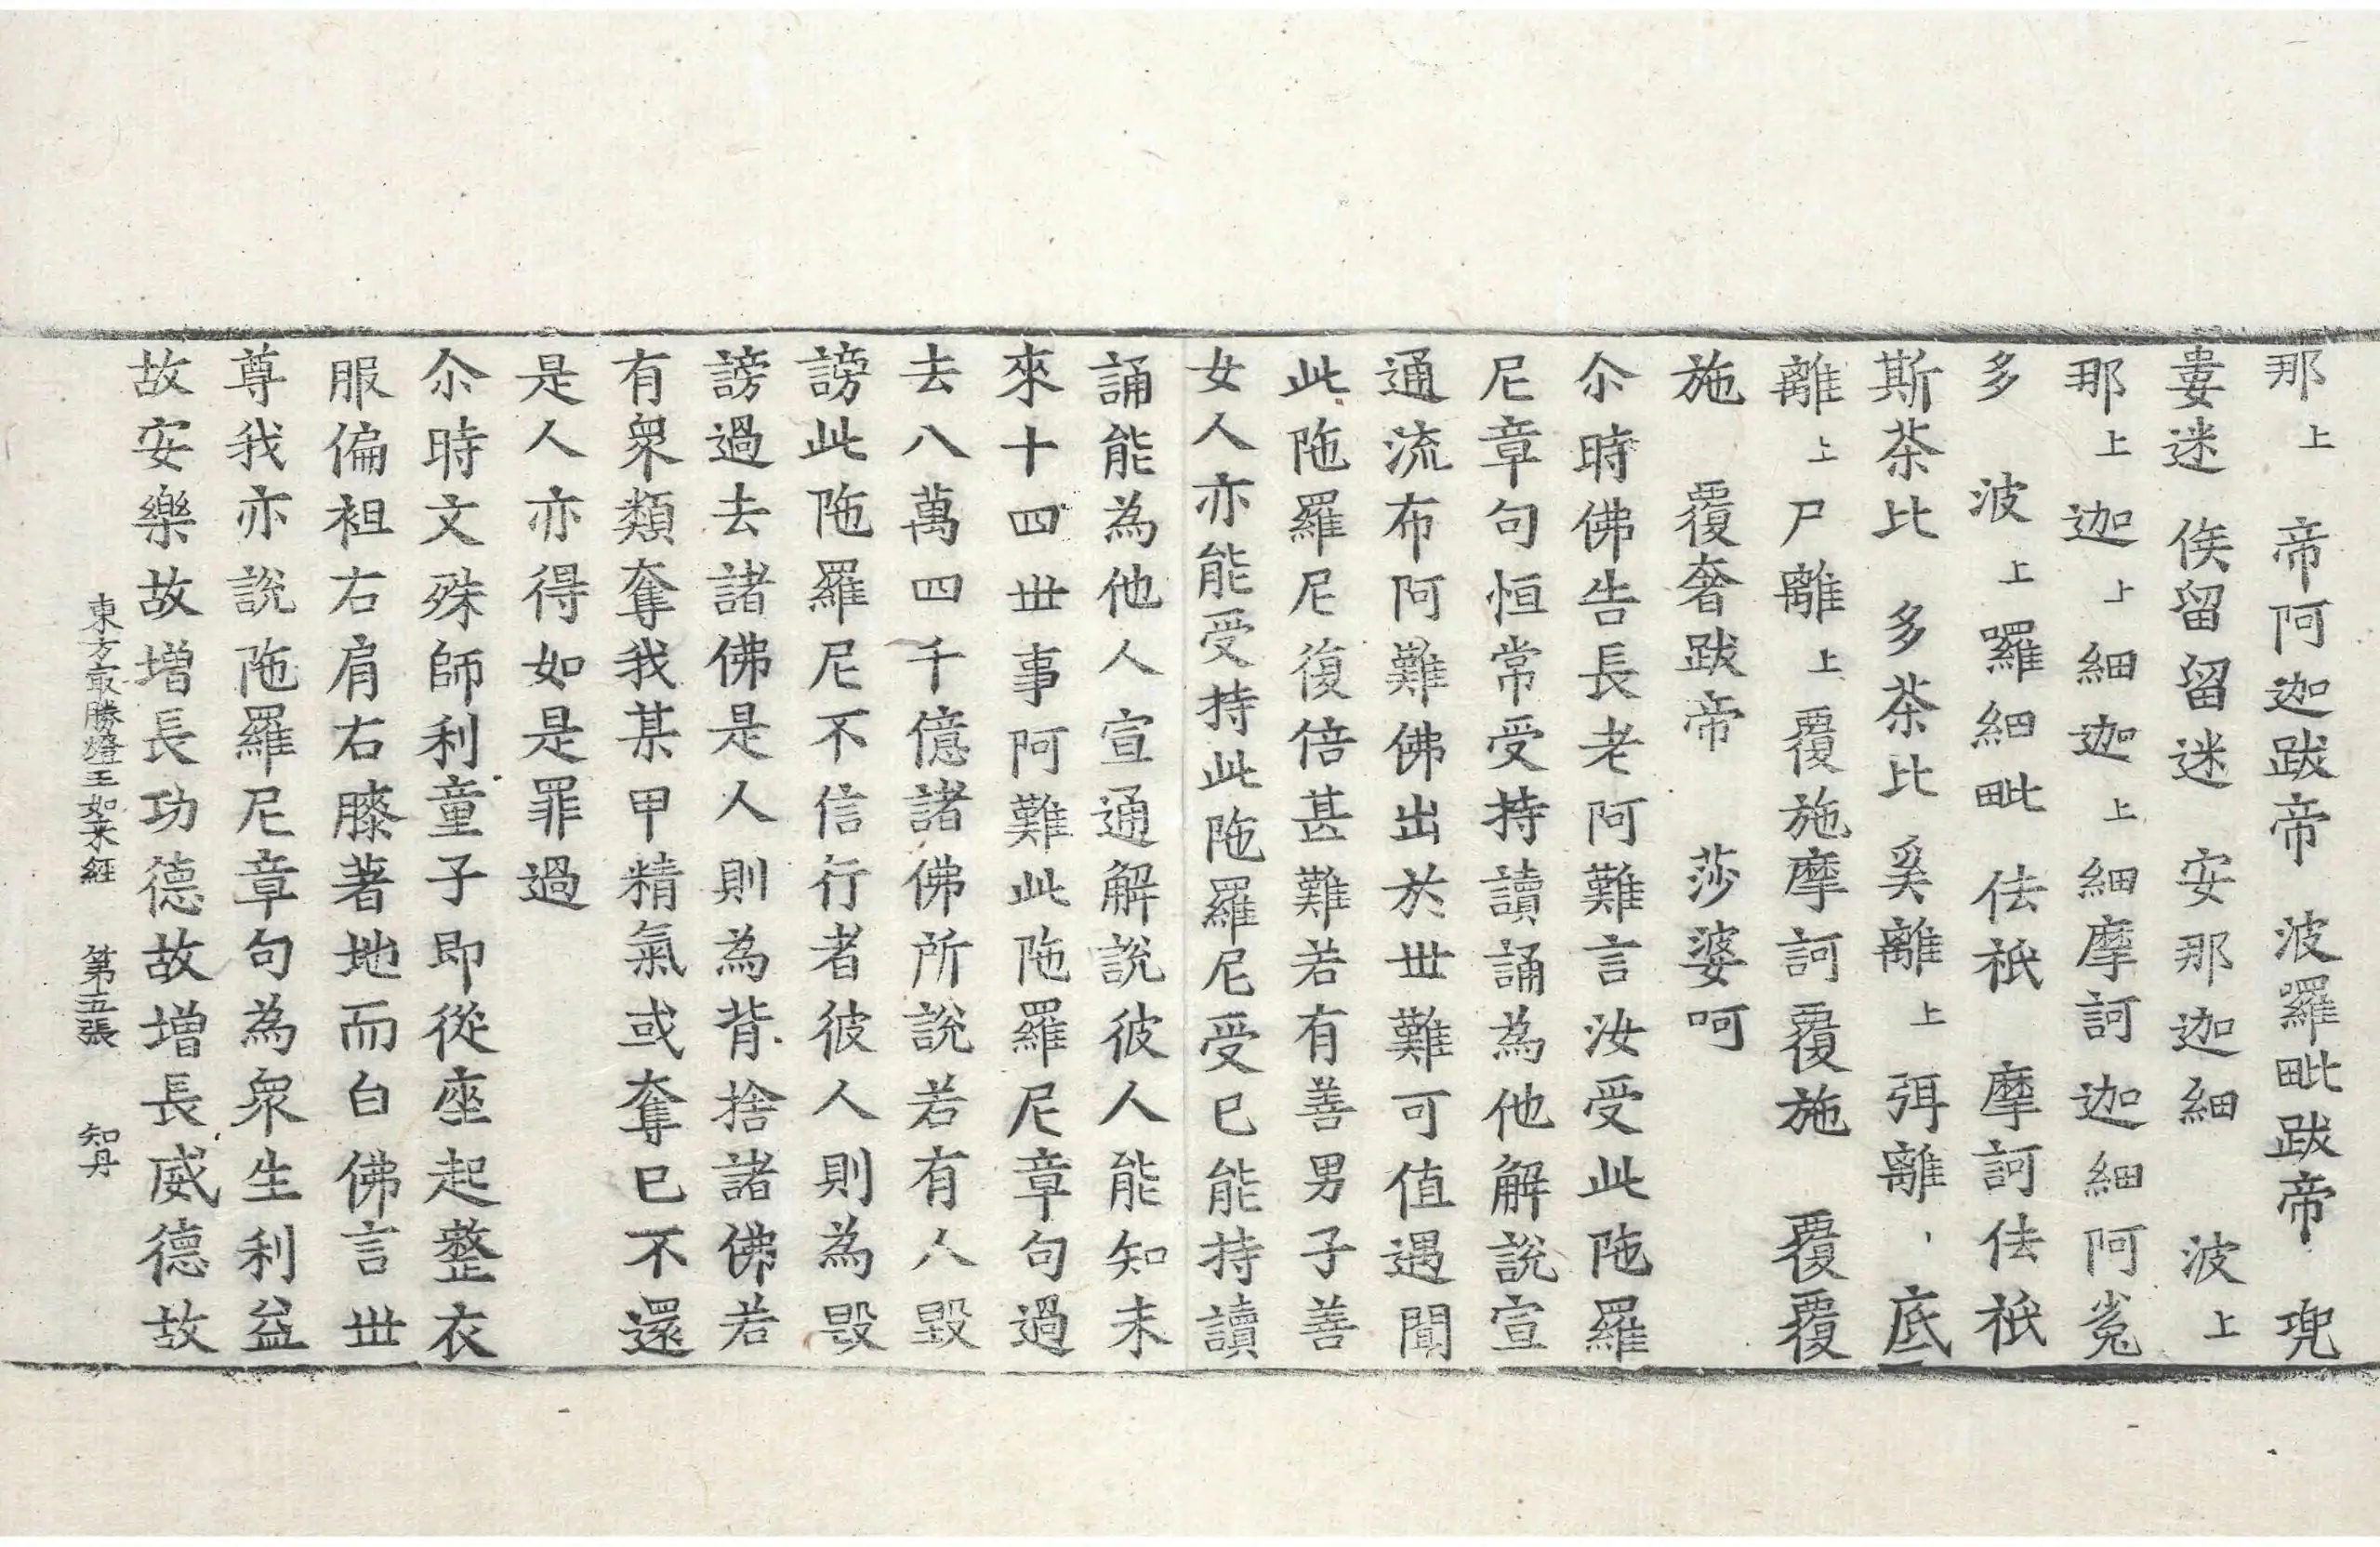 那上 帝阿迦跋帝 波羅毗跋帝 兜
婁迷 俟留留迷 安那迦細 波上
那上 迦上細迦上細摩訶迦細阿㝹
多 波上羅細毗 佉祇 摩訶佉祇
斯荼比 多荼比 奚離上 弭離上 底
離上尸離上覆施摩訶覆施 覆覆
施 覆奢跋帝 莎婆呵
尒時佛告長老阿難言汝受此陁羅
尼章句恒常受持讀誦為他解說宣
通流布阿難佛出於丗難可值遇聞
此陁羅尼復倍甚難若有善男子善
女人亦能受持此陁羅尼受已能持讀
誦能為他人宣通解說彼人能知未
來十四丗事阿難此陁羅尼章句過
去八萬四千億諸佛所說若有人毀
謗此陁羅尼不信行者彼人則為毀
謗過去諸佛是人則為背捨諸佛若
有衆類奪我某甲精氣或奪已不還
是人亦得如是罪過
尒時文殊師利童子即從座起整衣
服偏袒右肩右膝著地而白佛言丗
尊我亦說陁羅尼章句為衆生利益
故安樂故增長功德故增長威德故
東方㝡勝燈王如来經 第五張 知丹